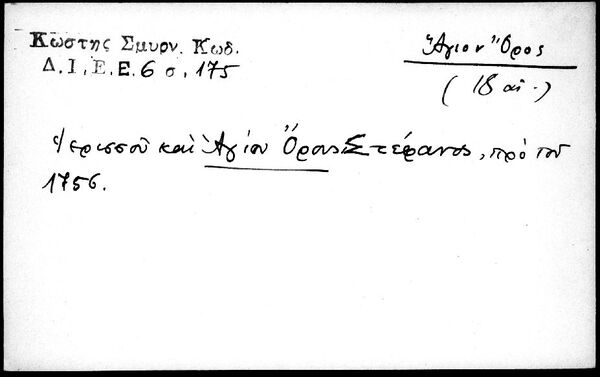 Κώστης Σμυρν. Κωδ.
Δ.Ι.Ε.Ε. 6 σ. 175
Ἅγιον Ὄρος
(18 αἰ.)
Ἱερισσοῦ καὶ Ἁγίου Ὄρους Στέφανος, πρὸ τοῦ
1756.